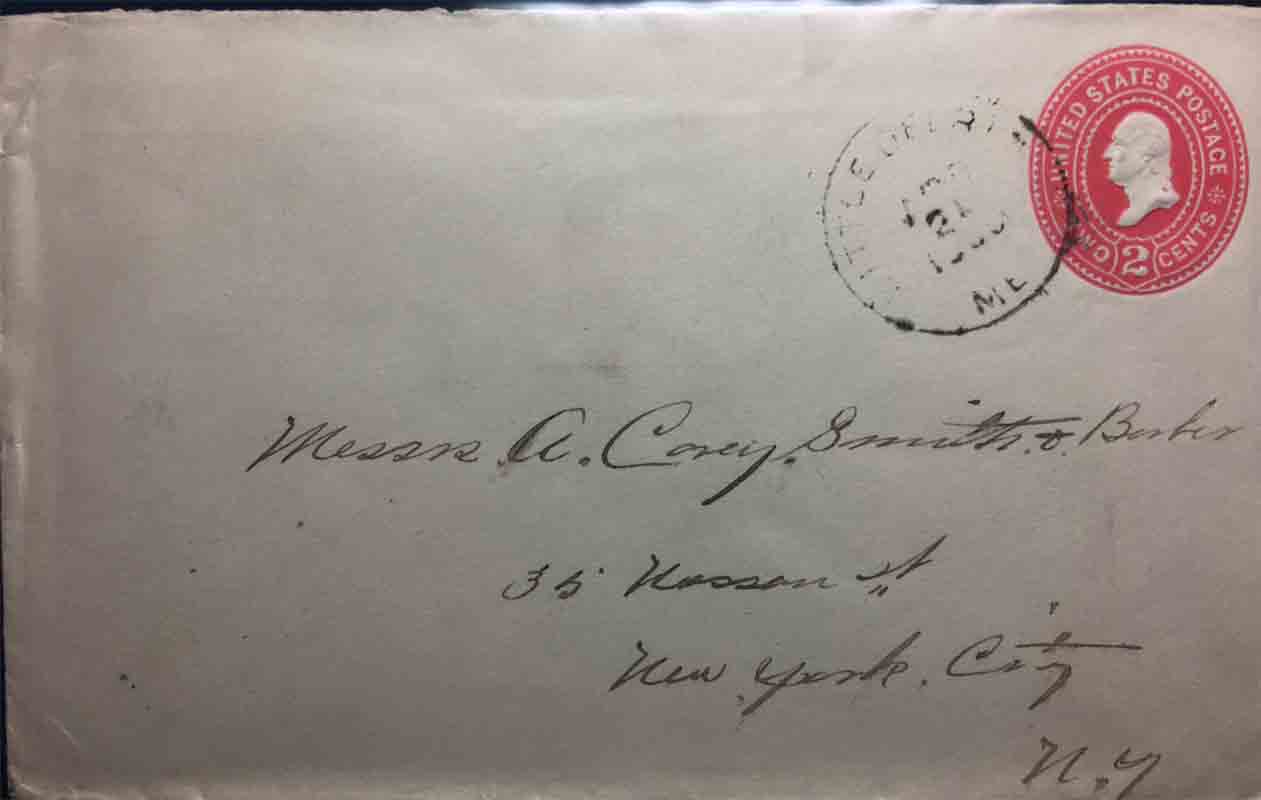 UNITED STATES POSTAGE
TWO 2 CENTS
LITTLE
21
ME
Messrs. A. Corey. Smith. & Barber
35 Nassau st
New York. City
N.Y